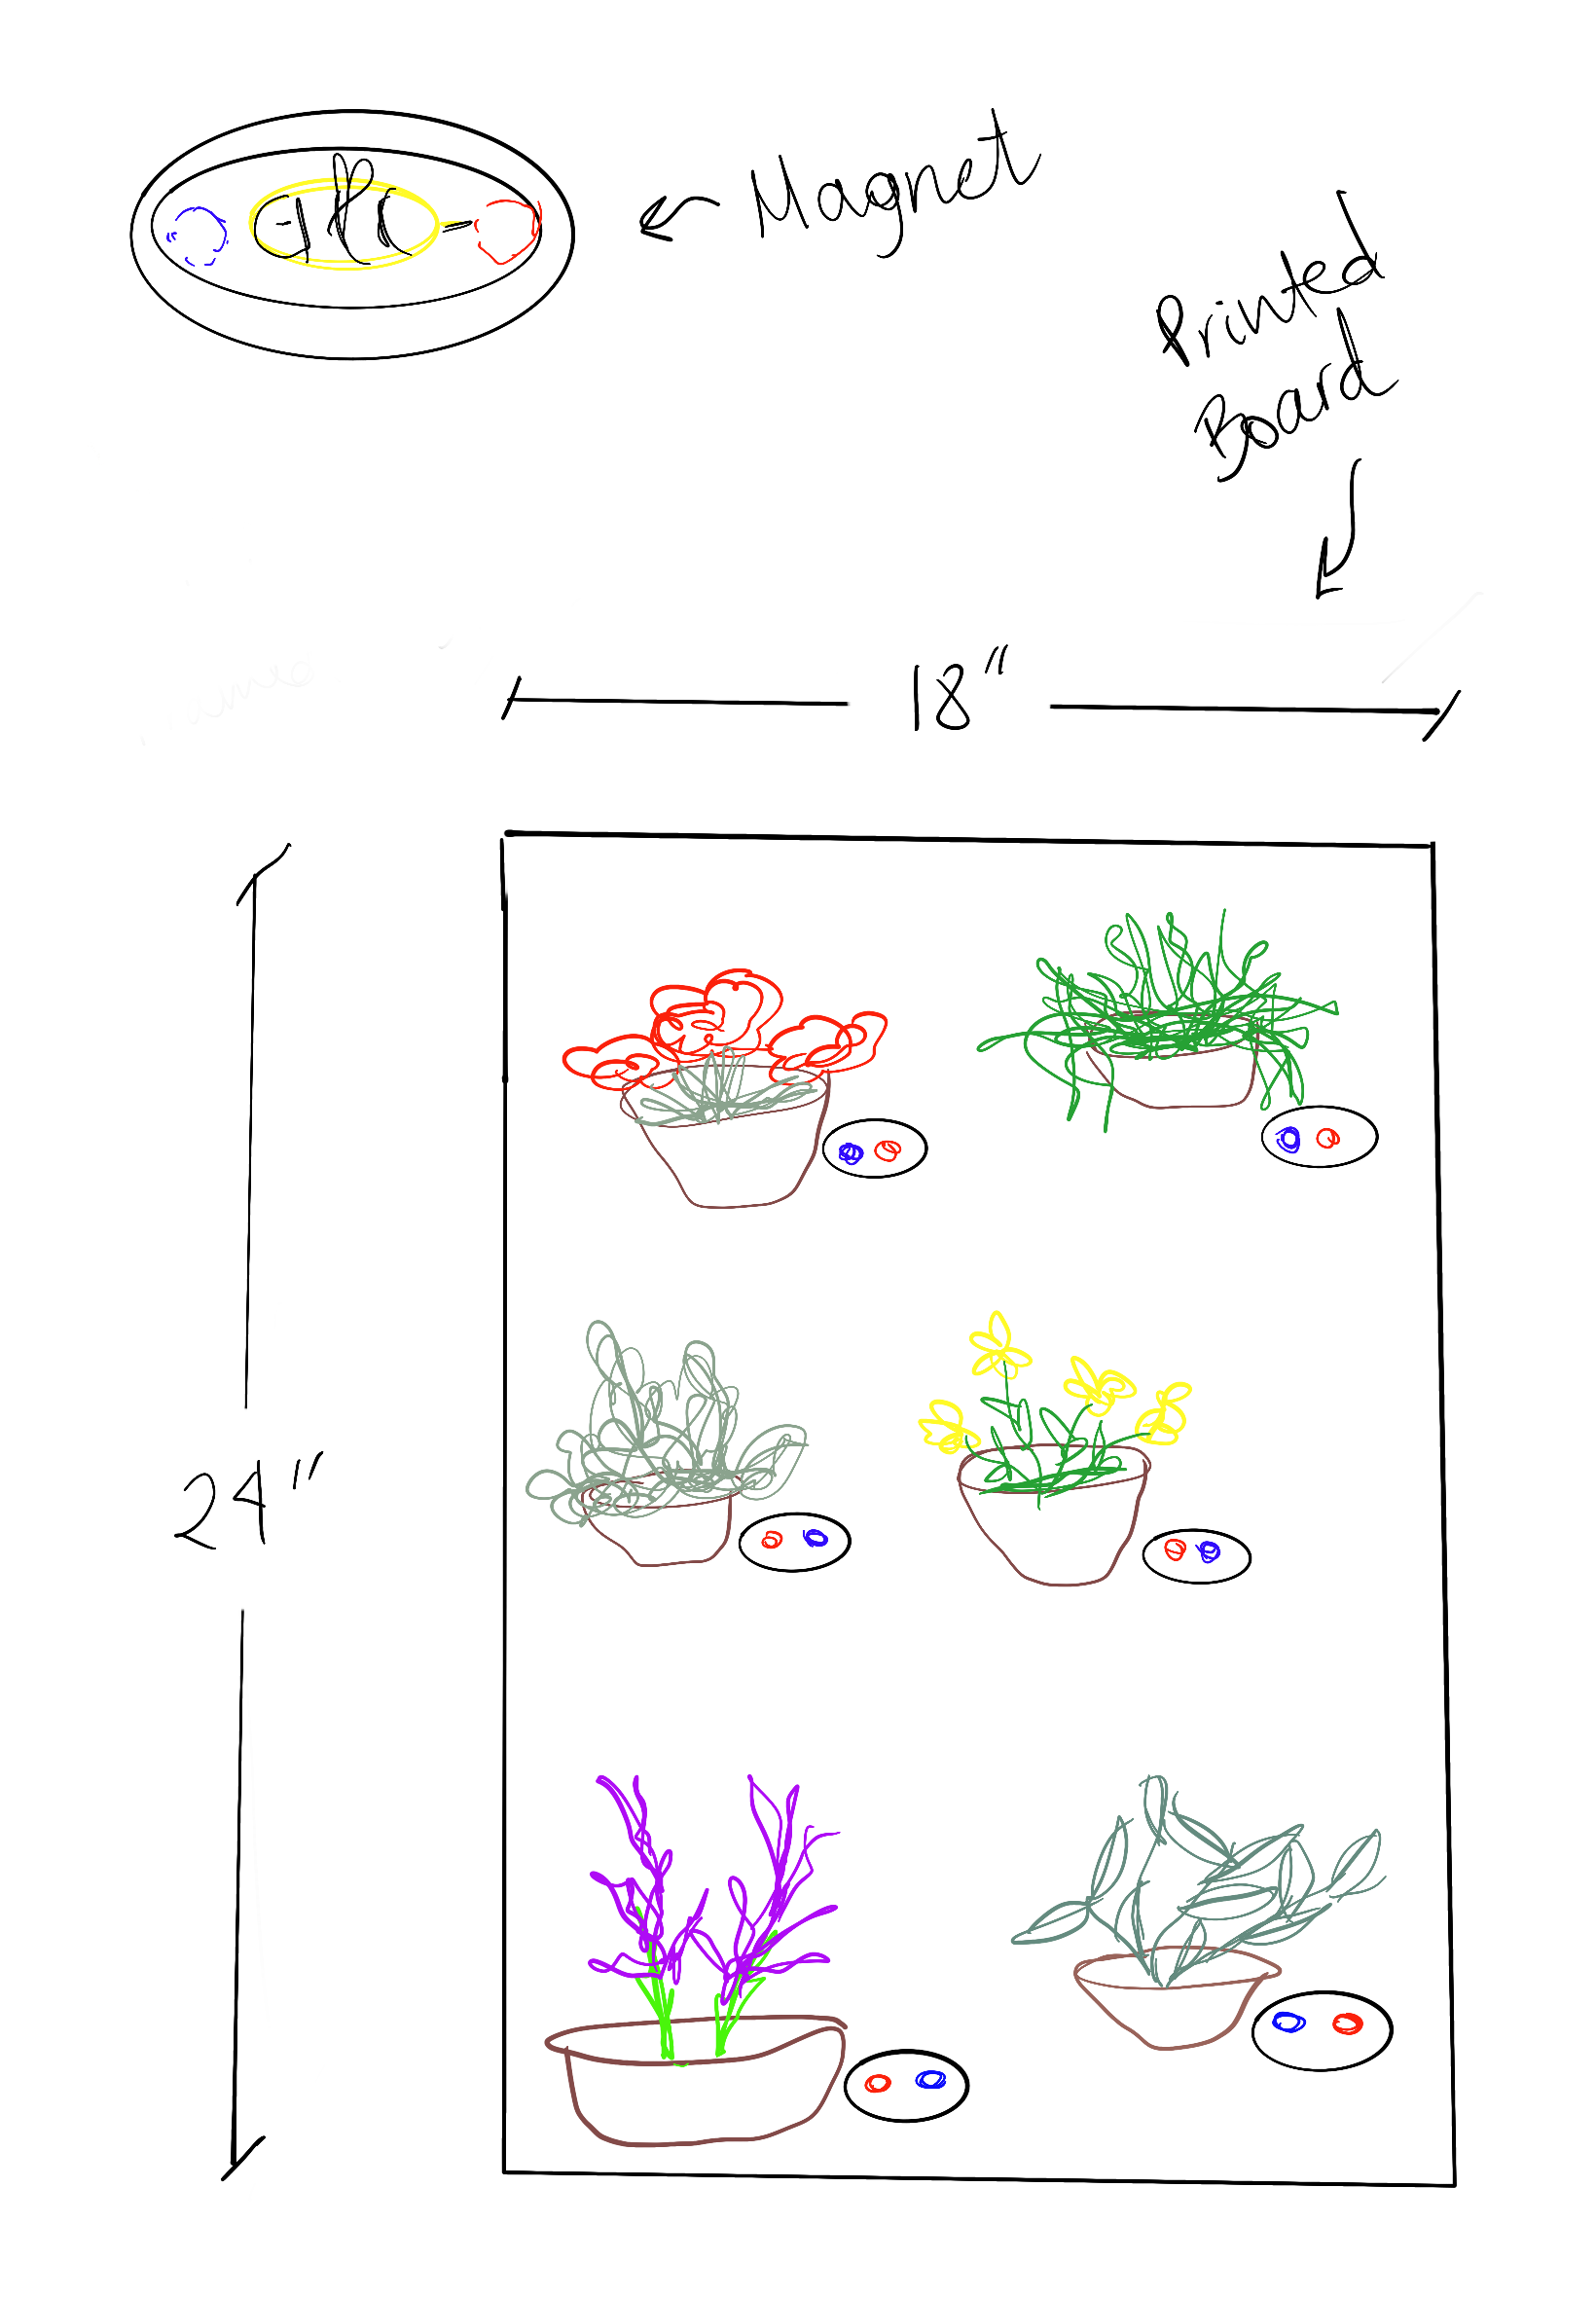 Magnet
Printed
Board
18"
24"